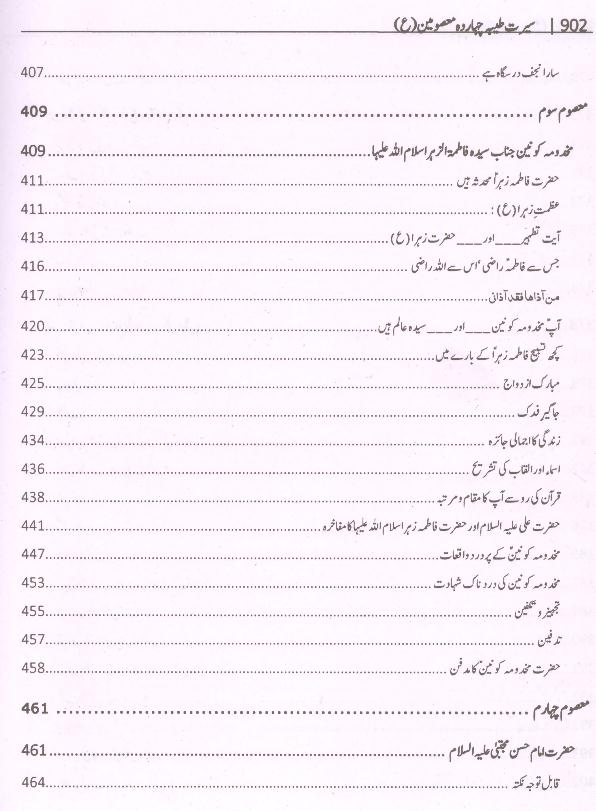 902 | سیرت طیبہ چہاردہ معصومین (ع)
سارا نجف درسگاہ ہے ........ 407
معصوم سوم ........ 409
مخدومہ کونین جناب سیدہ فاطمۃ الزہرا سلام اللہ علیہا ........ 409
حضرت فاطمہ زہراؑ محدثہ ہیں ........ 411
عظمتِ زہرا (ع): ........ 411
آیت تطہیر___اور___حضرت زہرا (ع) ........ 413
جس سے فاطمہؑ راضی ‘اس سے اللہ راضی ........ 416
من آذاھا فقد آذانی ........ 417
آپؑ مخدومہ کونین___اور___سیدہ عالم ہیں ........ 420
کچھ تسبیح فاطمہ زہراؑ کے بارے میں ........ 423
مبارک ازدواج ........ 425
جاگیر فدک ........ 429
زندگی کا اجمالی جائزہ ........ 434
اسماء اور القاب کی تشریح ........ 436
قرآن کی رو سے آپ کا مقام و مرتبہ ........ 438
حضرت علی علیہ السلام اور حضرت فاطمہ زہرا سلام اللہ علیہا کا مفاخرہ ........ 441
مخدومہ کونینؑ کے پردرد واقعات ........ 447
مخدومہ کونین کی دردناک شہادت ........ 453
تجہیز و تکفین ........ 455
تدفین ........ 457
حضرت مخدومہ کونینؑ کا مدفن ........ 458
معصوم چہارم ........ 461
حضرت امام حسن مجتبیٰ علیہ السلام ........ 461
قابل توجہ نکتہ ........ 464